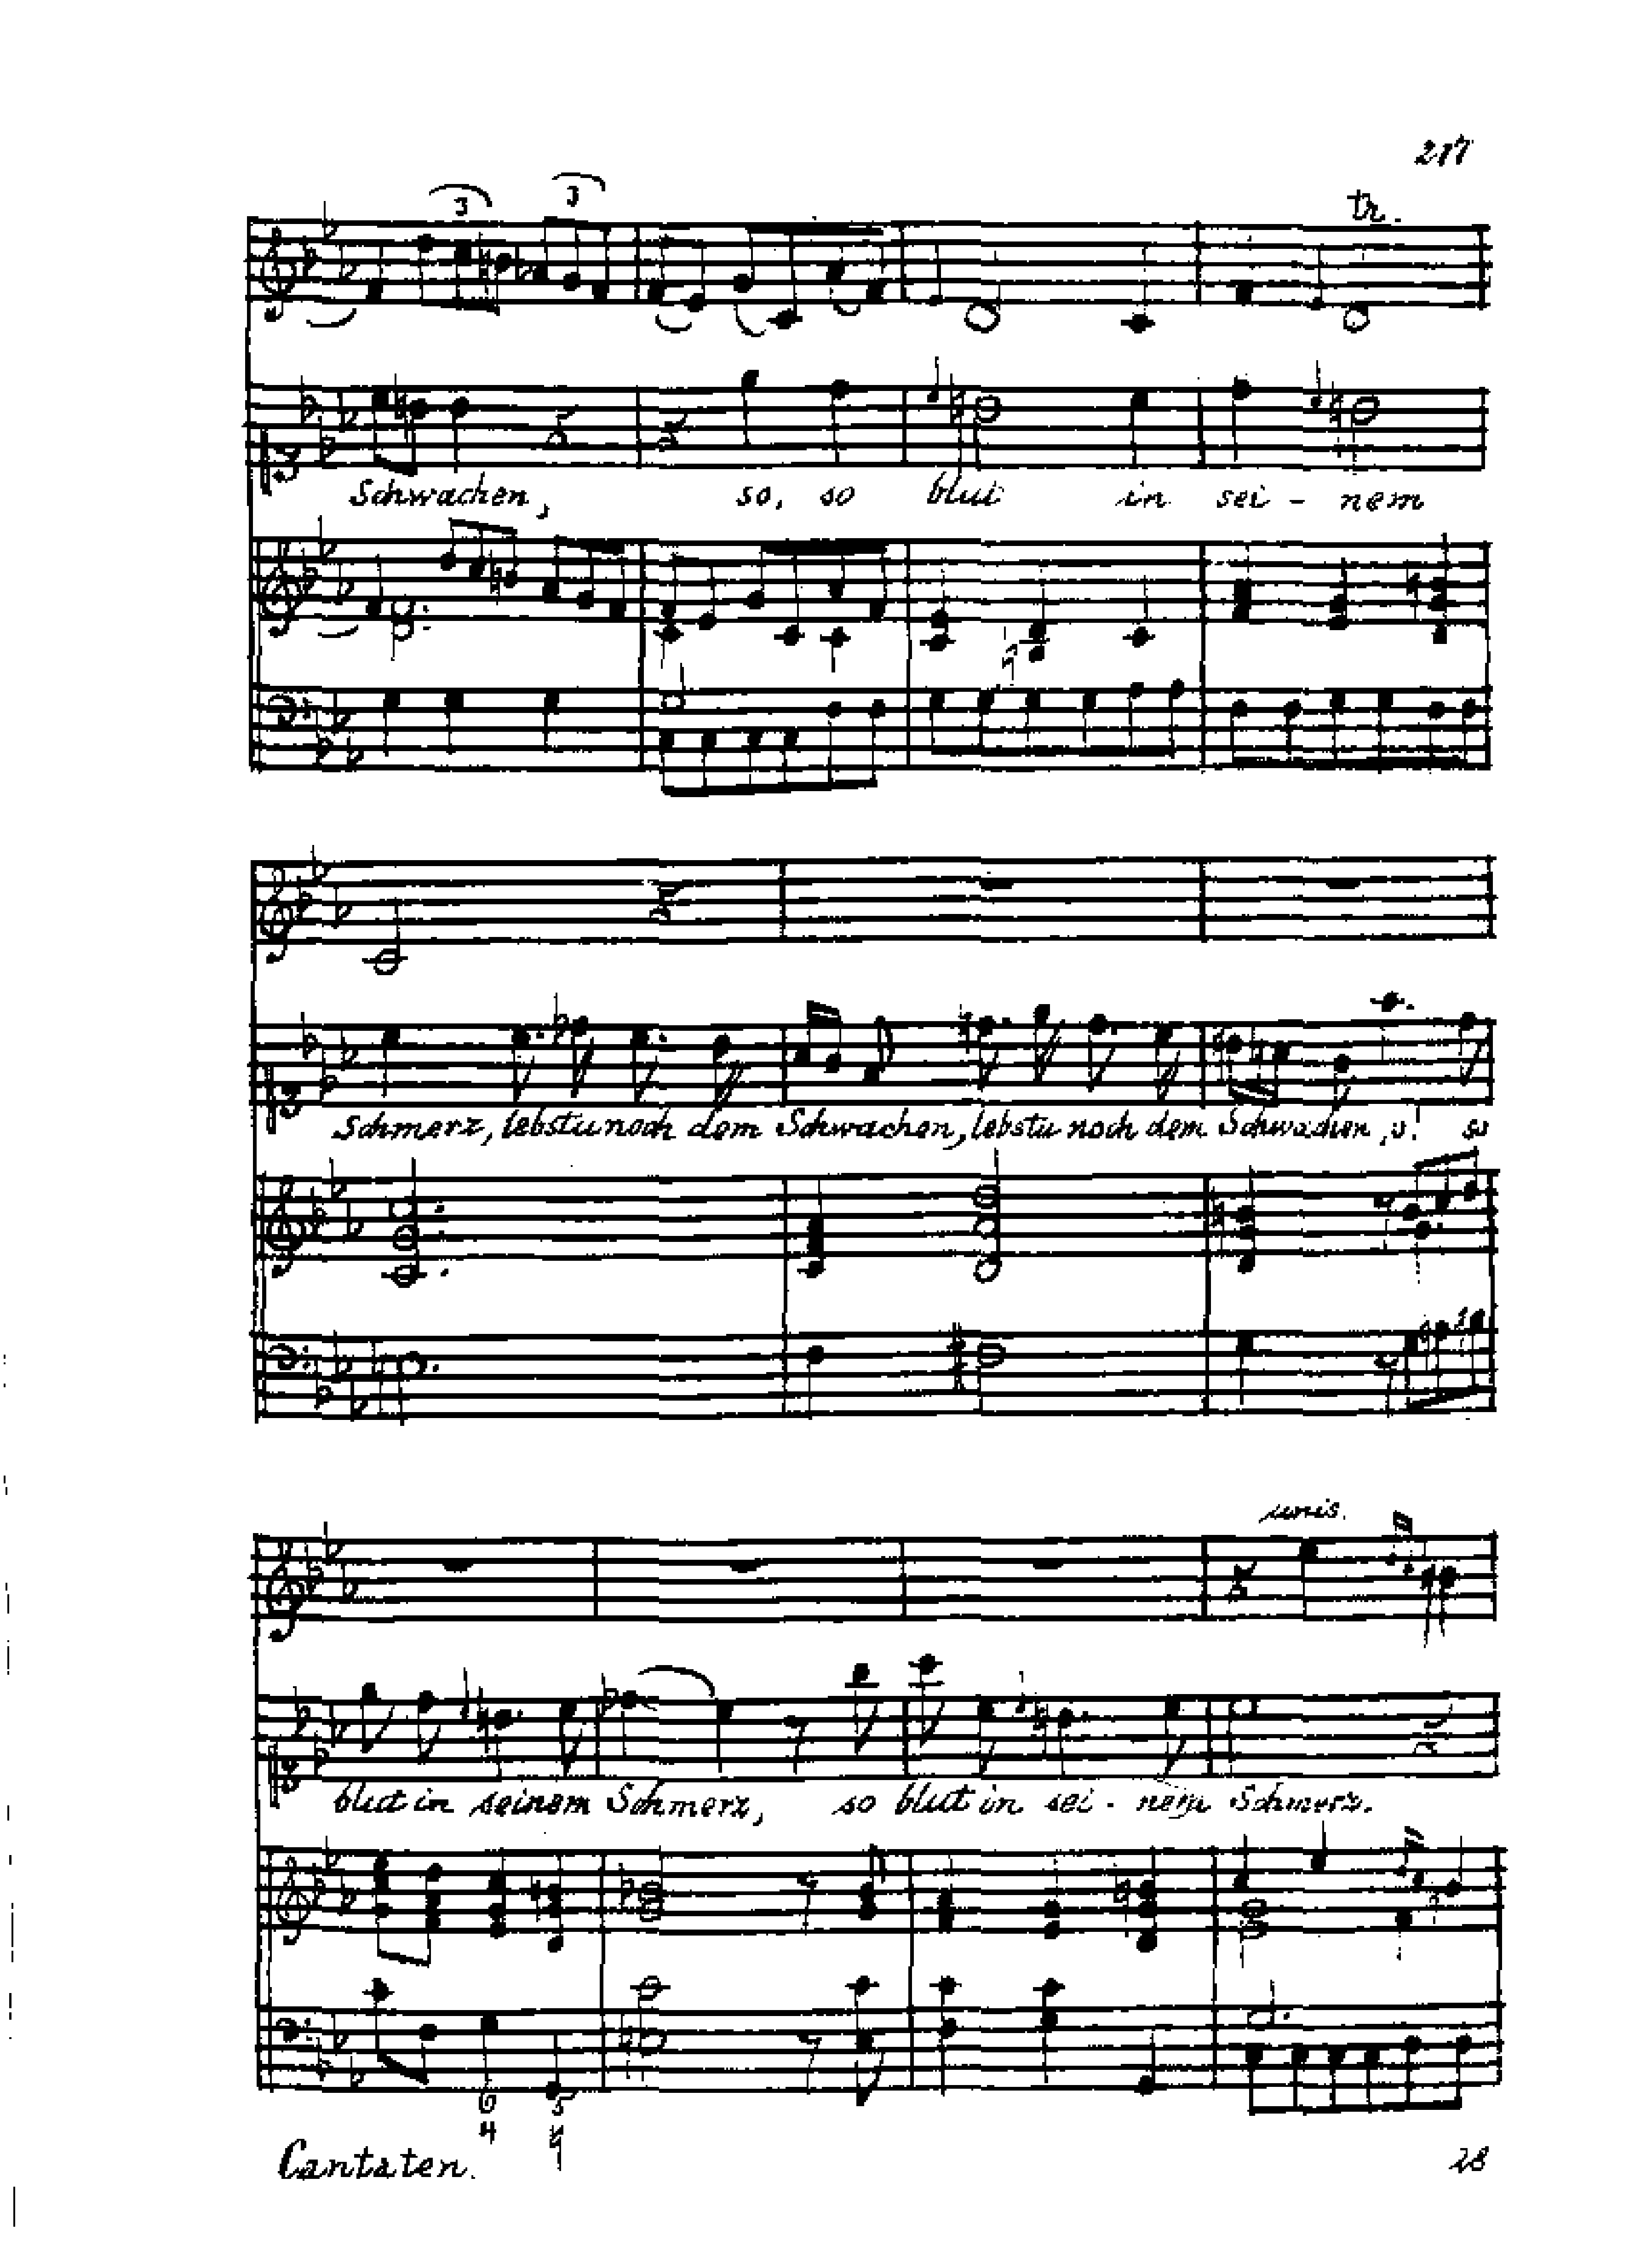 217
3 3 tr.
Schwachen, so, so blut in sei - nem
Schmerz, lebstu noch dem Schwachen, lebstu noch dem Schwachen, so
unis.
blut in seinem Schmerz, so blut in sei - nem Schmerz.
6 5
4 ♮
Cantaten. 28